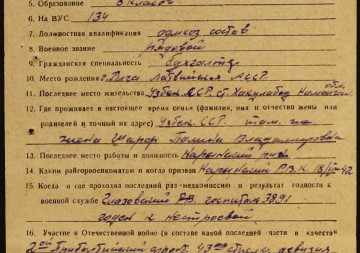 5. Образование 8 классов
6. На ВУС 134
7. Должностная квалификация рядков. состав
8. Военное звание рядовой
9. Гражданская специальность бухгалтер
10. Место рождения г. Рига Латвийская ССР
11. Последнее место жительства Узбек. ССР с. Хакулабад Наманган. обл.
12. Где проживает в настоящее время семья (фамилия, имя и отчество жены или
родителей и точный их адрес) Узбек ССР там-же
жена Полина Владимировна
13. Последнее место работы и должность Нарынский
14. Каким райгорвоенкоматом и когда призван Нарынский Р.В.К. 42
15. Когда и где проходил последний раз медкомиссию и результат годности к
военной службе Глазовский госпиталь 3891
годен к нестроевой
16. Участие в Отечественной войне (в составе какой последней части и качестве
2ой Прибалтийский фронт, 43 стрелк. дивизия